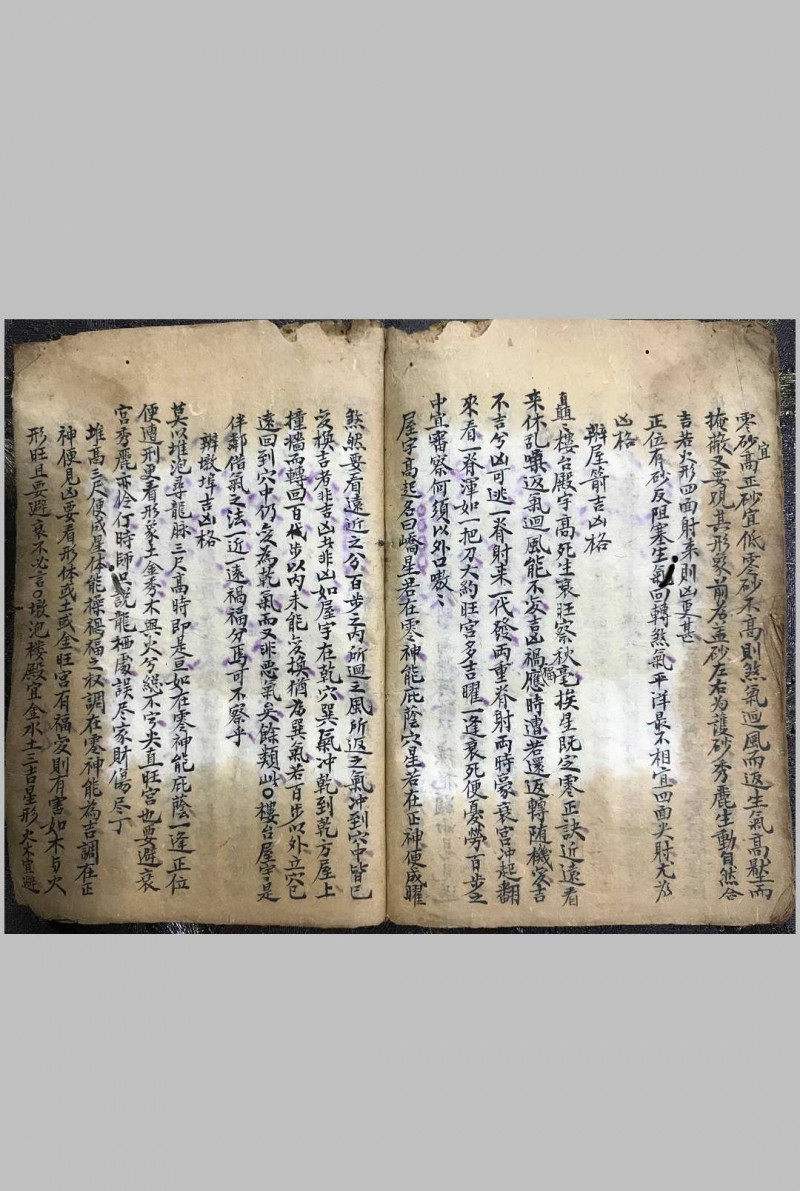 零砂宜高正砂宜低零砂不高則煞氣迴風而返生氣高壓而
掩蔽又要現其形象前若孟砂左右為護砂秀麗生動自然合
吉若火形四面射來則凶更甚
正位有砂反阻塞生氣回轉煞氣平洋最不相宜四面尖射尤為
凶格
辨屋箭吉凶格
矗〻樓台殿宇高死生衰旺察秋毫挨星既定零正訣近遠看
來休乱嚷返氣迴風能不変吉凶禍應時遭若還返轉随機変吉
不吉兮凶可逃一脊射来一代發両重脊射両時豪衰宮冲起翻
來看一脊渾如一把刀大約旺宮多吉曜一逢衰死便憂勞百步之
中宜審察何須以外口嗷〻
屋宇高起名曰嶠星若在零神能庇蔭穴星若在正神便成曜
煞然要看遠近之分百步之内所迴之風所返之氣冲到穴中皆已
変換吉者非吉凶者非凶如屋宇在乾穴巽氣冲乾到乾方屋上
撞墻而轉回百步以内未能変換猶為巽氣若百步以外立穴已
遠回到穴中仍変為乾氣而又非悪氣矣餘類此〇樓台屋宇是
伴鄰借氣之法一近一遠禍福分焉可不察乎
辨墩埠吉凶格
莫以堆泡尋龍脉三尺高時即是亘如在零神能庇蔭一逢正位
便遭刑更看形象土金秀木與火兮總不宁尖直旺宮也要避衰
宮秀麗亦伶仃時師只説龍栖處誤尽家財傷尽丁
堆高三尺便成星体能操禍福之权調在零神能為吉調在正
神便見凶要看形体或土或金旺宮有福变則有害如木与火
形旺且要避衰不必言〇墩泡楼殿宜金水土三吉星形火木宜避